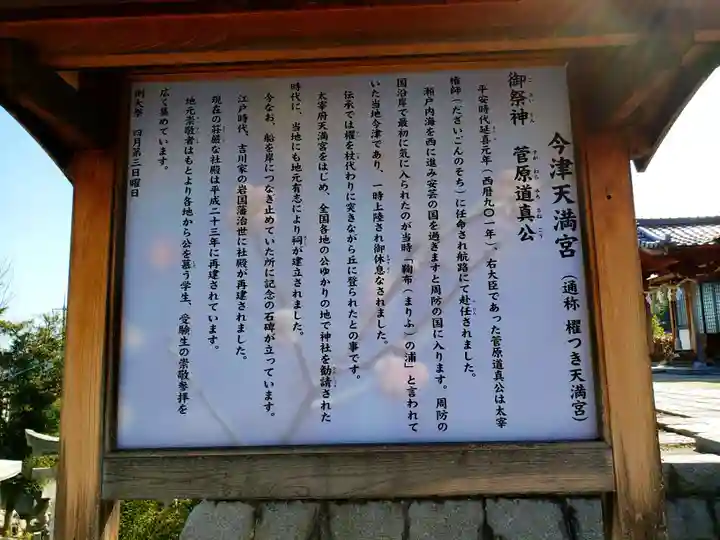 今津天満宮（通称 櫂つき天満宮）
御祭神 菅原道真公
平安時代延喜元年（西暦九〇一年）、右大臣であった菅原道真公は太宰
権師（ださいごんのそち）に任命され航路にて赴任されました。
瀬戸内海を西に進み安芸の国を過ぎますと周防の国に入ります。周防の
国沿岸で最初に気に入られたのが当時「鞠布（まりふ）の浦」と言われて
いた当地今津であり、一時上陸され御休息なされました。
伝承では櫂を杖代わりに突きながら丘に登られたとの事です。
太宰府天満宮をはじめ、全国各地の公ゆかりの地で神社を勧請された
時代に、当地にも地元有志により祠が建立されました。
今なお、船を岸につなぎ止めていた所に記念の石碑が立っています。
江戸時代、吉川家の岩国藩治世に社殿が再建されました。
現在の荘厳な社殿は平成二十三年に再建されています。
地元崇敬者はもとより各地から公を慕う学生、受験生の崇敬参拝を
広く集めています。
例大祭 四月第三日曜日